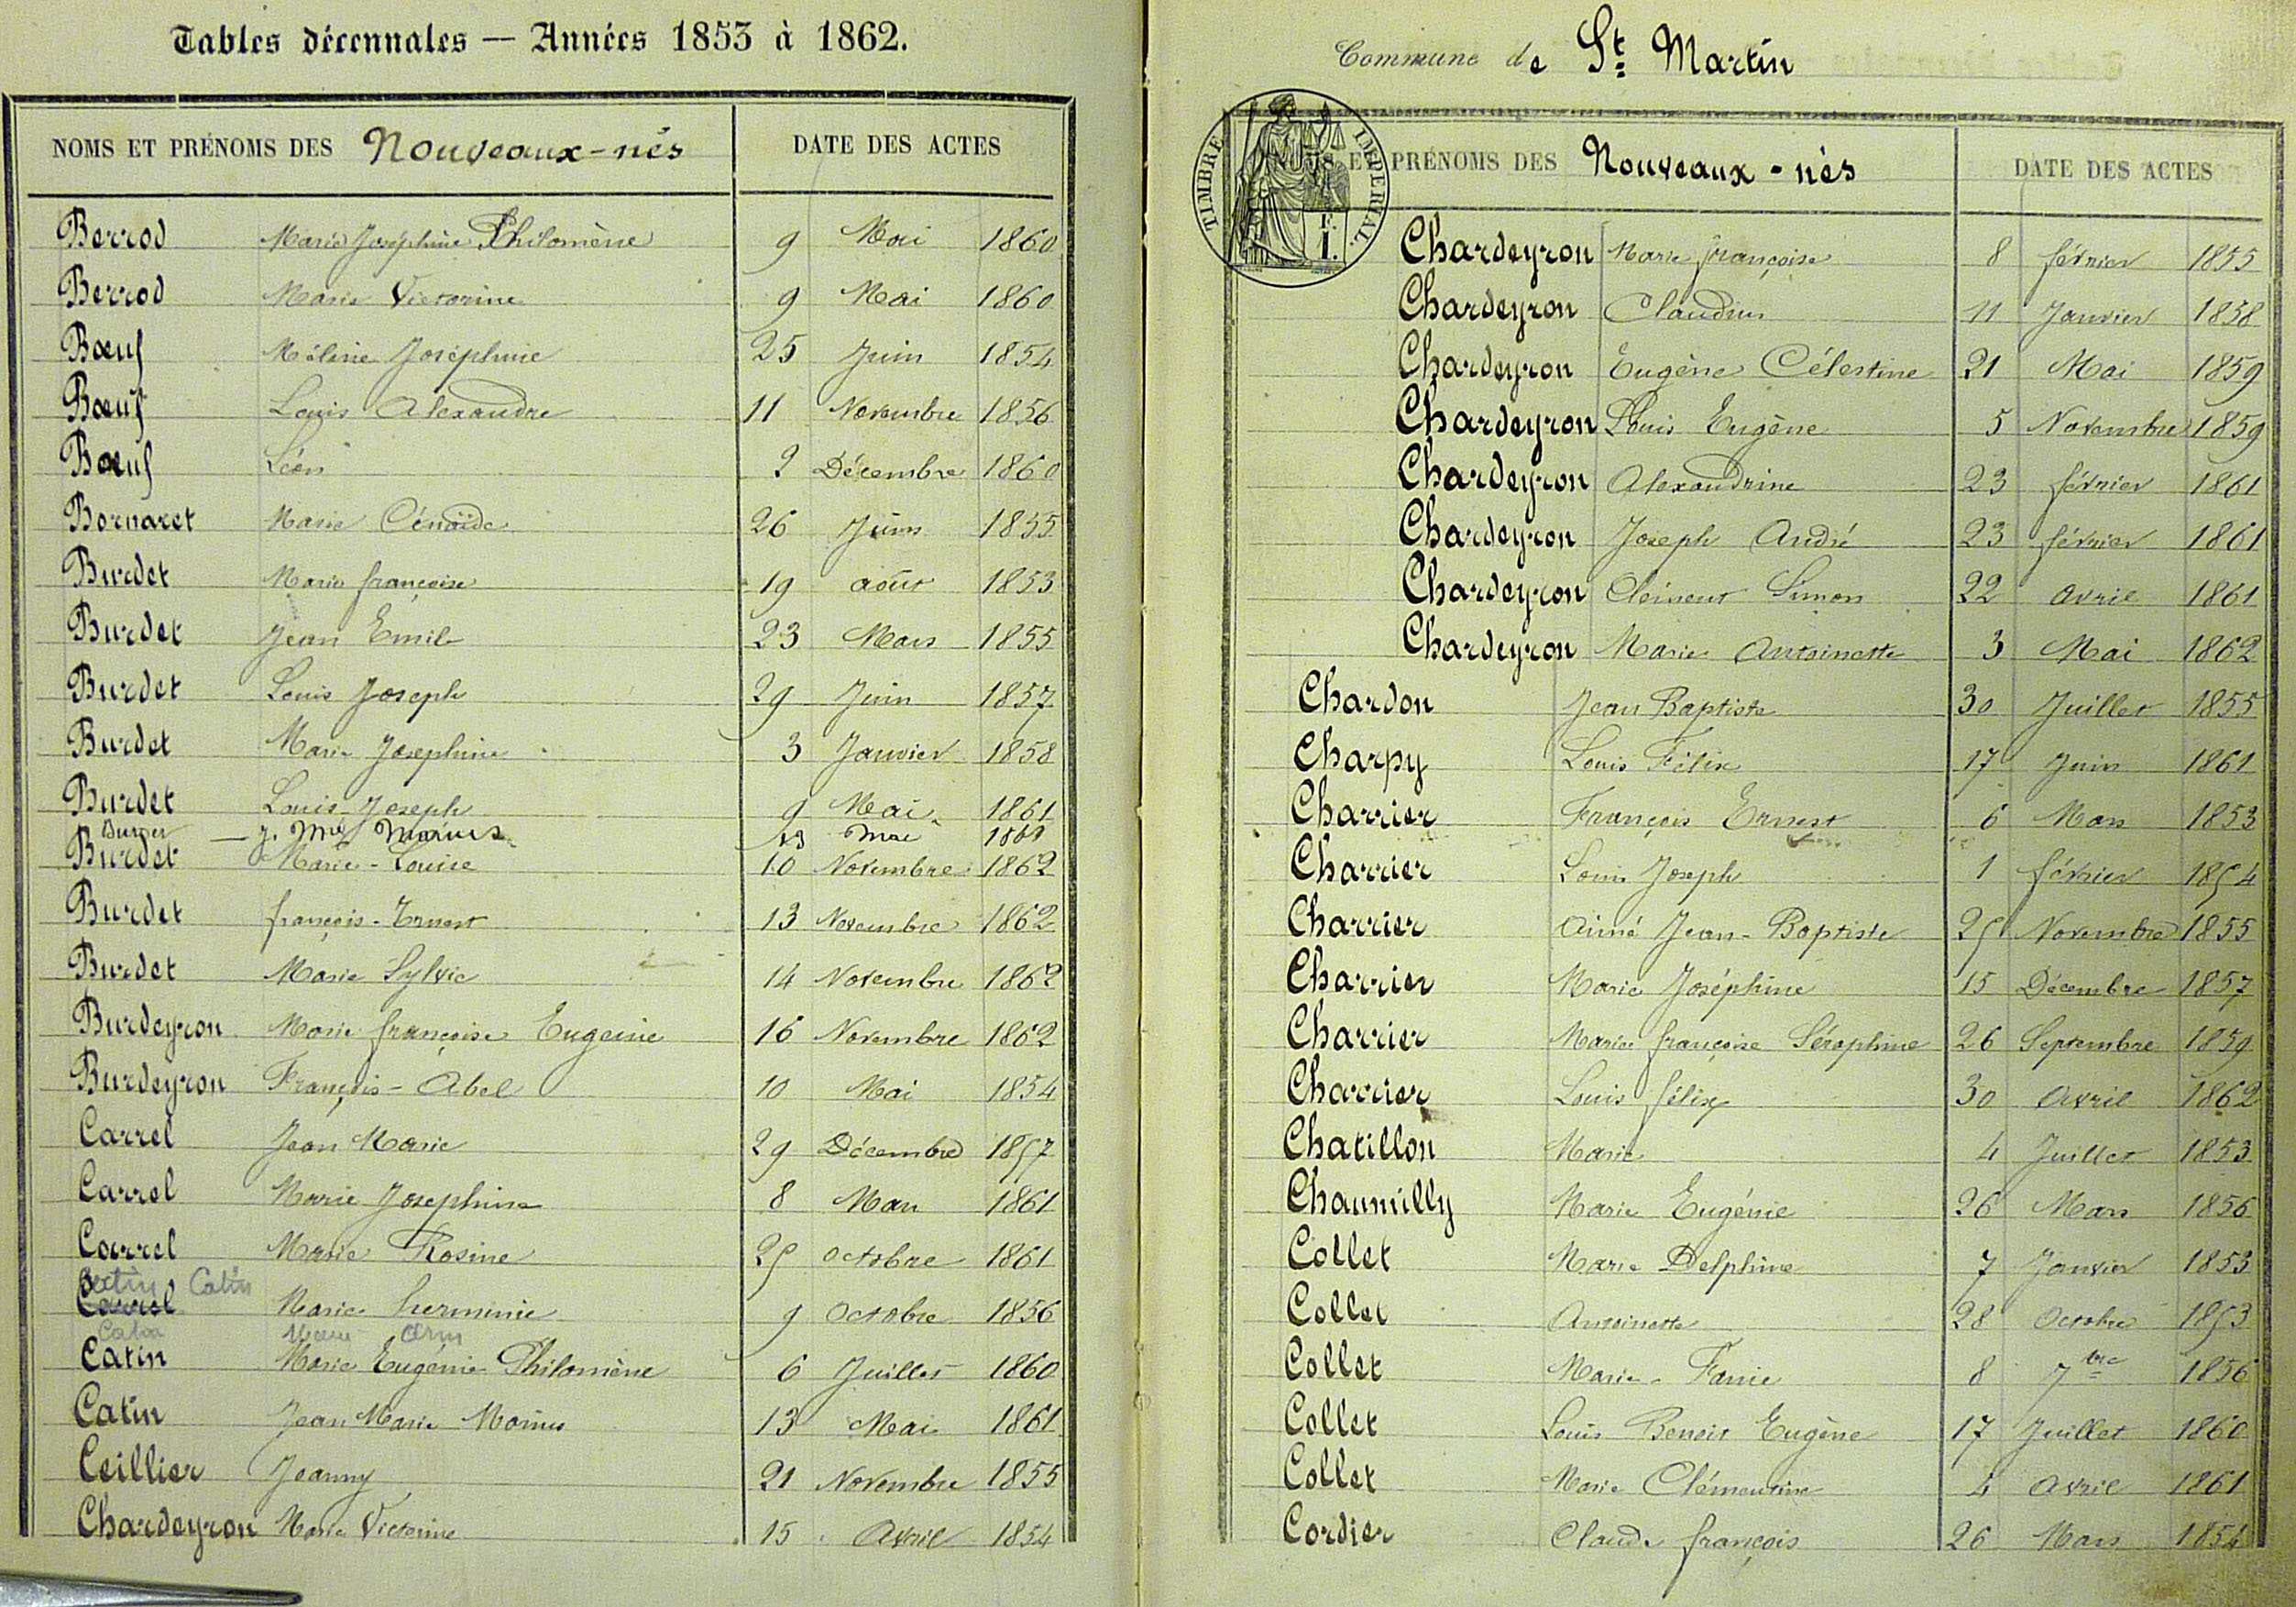 Tables décennales — Années 1853 à 1862.
NOMS ET PRÉNOMS DES Nouveaux-nés DATE DES ACTES
Berrod Marie Joséphine Philomène 9 Mai 1860
Berrod Marie Victorine 9 Mai 1860
Bœuf Méline Joséphine 25 Juin 1854
Bœuf Louis Alexandre 11 Novembre 1856
Bœuf Léon 2 Décembre 1860
Bornaret Marie Cénoïde 26 Juin 1855
Burdet Marie françoise 19 août 1853
Burdet Jean Emile 23 Mars 1855
Burdet Louis Joseph 29 Juin 1857
Burdet Marie Josephine 3 Janvier 1858
Burdet Louis-Joseph 9 Mai 1861
Burdet — J. Mie Marius 13 Mai 1861
Burdet Marie-Louise 10 Novembre 1862
Burdet françois-Ernest 13 Novembre 1862
Burdet Marie Sylvie 14 Novembre 1862
Burdeyron Marie françoise Eugenie 16 Novembre 1862
Burdeyron François-Abel 10 Mai 1854
Carrel Jean Marie 29 Décembre 1857
Carrel Marie Josephine 8 Mars 1861
Carrel Marie Rosine 25 octobre 1861
Catin Catin
Carrel Marie herminie 9 Octobre 1856
Catin Marie
Catin Marie Eugénie Philomène 6 Juillet 1860
Catin Jean Marie Marius 13 Mai 1861
Ceillier Jeanny 21 Novembre 1855
Chardeyron Marie Victorine 15 Avril 1854
Commune de St Martin
TIMBRE IMPERIAL.
F. 1.
NOMS ET PRÉNOMS DES Nouveaux-nés DATE DES ACTES
Chardeyron Marie françoise 8 février 1855
Chardeyron Claudius 11 Janvier 1858
Chardeyron Eugène Célestine 21 Mai 1859
Chardeyron Louis Eugène 5 Novembre 1859
Chardeyron Alexandrine 23 février 1861
Chardeyron Joseph André 23 février 1861
Chardeyron Clément Simon 22 avril 1861
Chardeyron Marie Antoinette 3 Mai 1862
Chardon Jean Baptiste 30 Juillet 1855
Charpy Louis Félix 17 Juin 1861
Charrier François Ernest 6 Mars 1853
Charrier Louis Joseph 1 février 1854
Charrier Aimé Jean-Baptiste 25 Novembre 1855
Charrier Marie Joséphine 15 Décembre 1857
Charrier Marie françoise Séraphine 26 Septembre 1859
Charrier Louis félix 30 avril 1862
Chatillon Marie 4 Juillet 1853
Chaumilly Marie Eugénie 26 Mars 1856
Collet Marie Delphine 7 Janvier 1853
Collet Antoinette 28 Octobre 1853
Collet Marie-Fanie 8 7bre 1856
Collet Louis Benoit Eugène 17 Juillet 1860
Collet Marie Clémentine 4 avril 1861
Cordier Claude françois 26 Mars 1854